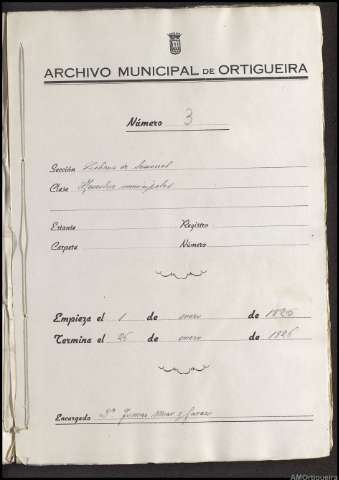 ARCHIVO MUNICIPAL DE ORTIGUEIRA
Número 3
Sección
Clase municipales
Estante Registro
Carpeta Número
Empieza el 1 de enero de 1826
Termina el 26 de enero de 1826
Encargado Dª
AMOrtigueira